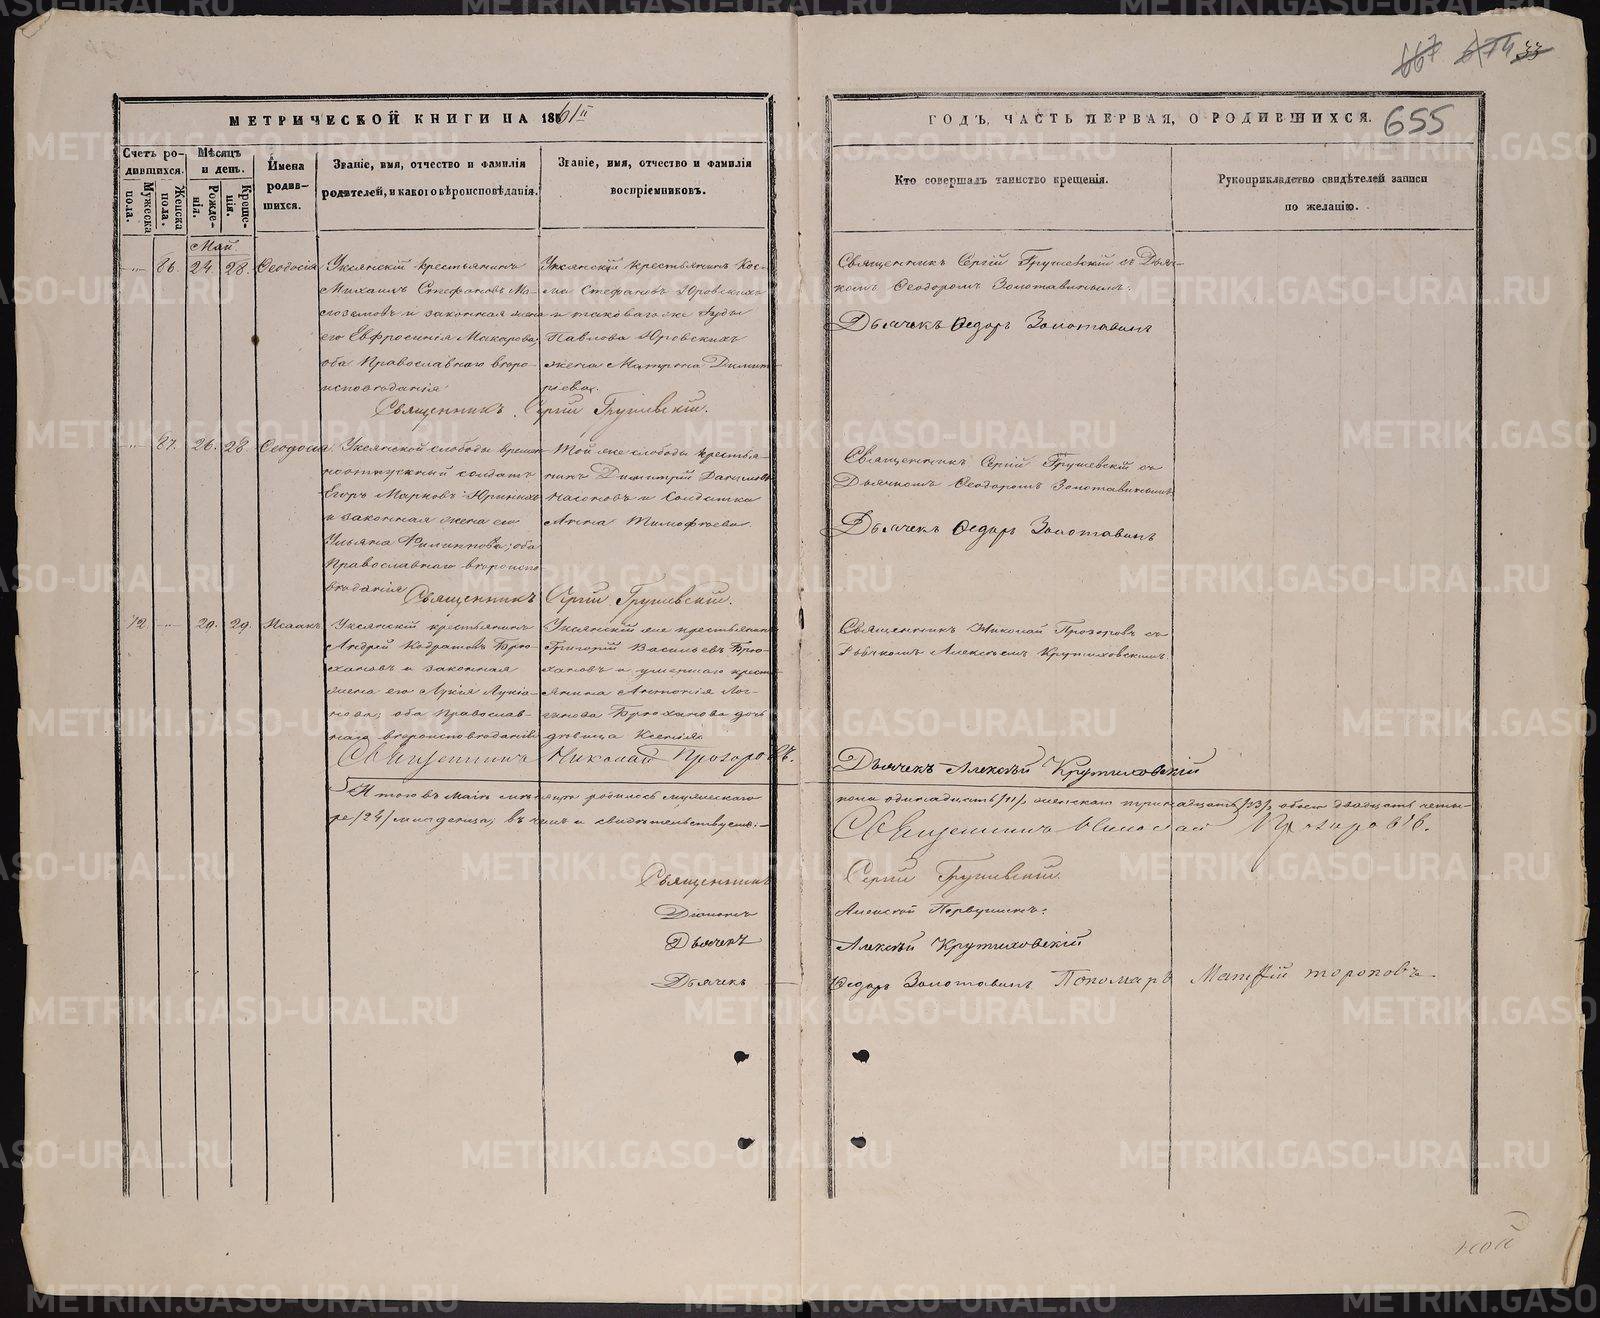 667 674 33
МЕТРИЧЕСКОЙ КНИГИ НА 1861й
ГОДЪ, ЧАСТЬ ПЕРВАЯ, О РОДИВШИХСЯ.
655
Счетъ родившихся.
Мужеска пола.
Женска пола.
Мѣсяцъ и день.
Рожденія.
Крещенія.
Имена родившихся.
Званіе, имя, отчество и фамилія родителей, и какого вѣроисповѣданія.
Званіе, имя, отчество и фамилія воспріемниковъ.
Кто совершалъ таинство крещенія.
Рукоприкладство свидѣтелей записи по желанію.
Май.
86. 24. 28. Ѳеодосія
Уксянскій крестьянинъ
Михаилъ Стефановъ Ма-
слозановъ и законная жена
его Евфросинія Макарова;
оба Православнаго вѣро-
исповѣданія
Уксянскій крестьянинъ Кос-
ма Стефановъ Юровскихъ
и таковаго же
Павлова Юровскихъ
жена Матрона Димит-
ріева.
Священникъ Сергій Грушевскій съ Дьяч-
комъ Ѳеодоромъ Золотавинымъ.
Дьячекъ Ѳедоръ Золотавинъ
Священникъ Сергій Грушевскій.
87. 26. 28. Ѳеодосія
Уксянской слободы времен-
ноотпускный солдатъ
Егоръ Марковъ Юриныхъ
и законная жена его
Ульяна Филиппова; оба
Православнаго вѣроиспо-
вѣданія
Той же слободы крестья-
нинъ Димитрій Даниловъ
и Солдатка
Анна Тимофѣева.
Священникъ Сергій Грушевскій съ
Дьячкомъ Ѳеодоромъ Золотавинымъ.
Дьячекъ Ѳедоръ Золотавинъ
Священникъ Сергій Грушевскій.
12. 29. 29. Исаакъ
Уксянскій крестьянинъ
Андрей Кодратовъ Брю-
хановъ и законная
жена его Лукія Лукіа-
нова; оба Православ-
наго вѣроисповѣданія
Уксянскій же крестьянинъ
Григорій Васильевъ Брю-
хановъ и умершаго кресть-
янина Антонія Лог-
гинова Брюханова дочь
дѣвица Ксенія.
Священникъ Николай Прозоровъ съ
Дьячкомъ Алексѣемъ Крутиховскимъ.
Священникъ Николай Прозоровъ.
Дьячекъ Алексѣй Крутиховскій
Итого въ Маіѣ мѣсяцѣ родилось мужескаго
пола одинадцать /11/, женскаго тринадцать /13/, обоего двадцать четы-
ре /24/ младенца; въ чемъ и свидѣтельствуемъ:
Священникъ Николай Прозоровъ.
Священникъ Сергій Грушевскій.
Діаконъ Алексѣй Первушинъ.
Дьячекъ Алексѣй Крутиховскій
Дьячекъ Ѳедоръ Золотавинъ Пономарь Матѳій Тороповъ.
METRIKI.GASO-URAL.RU